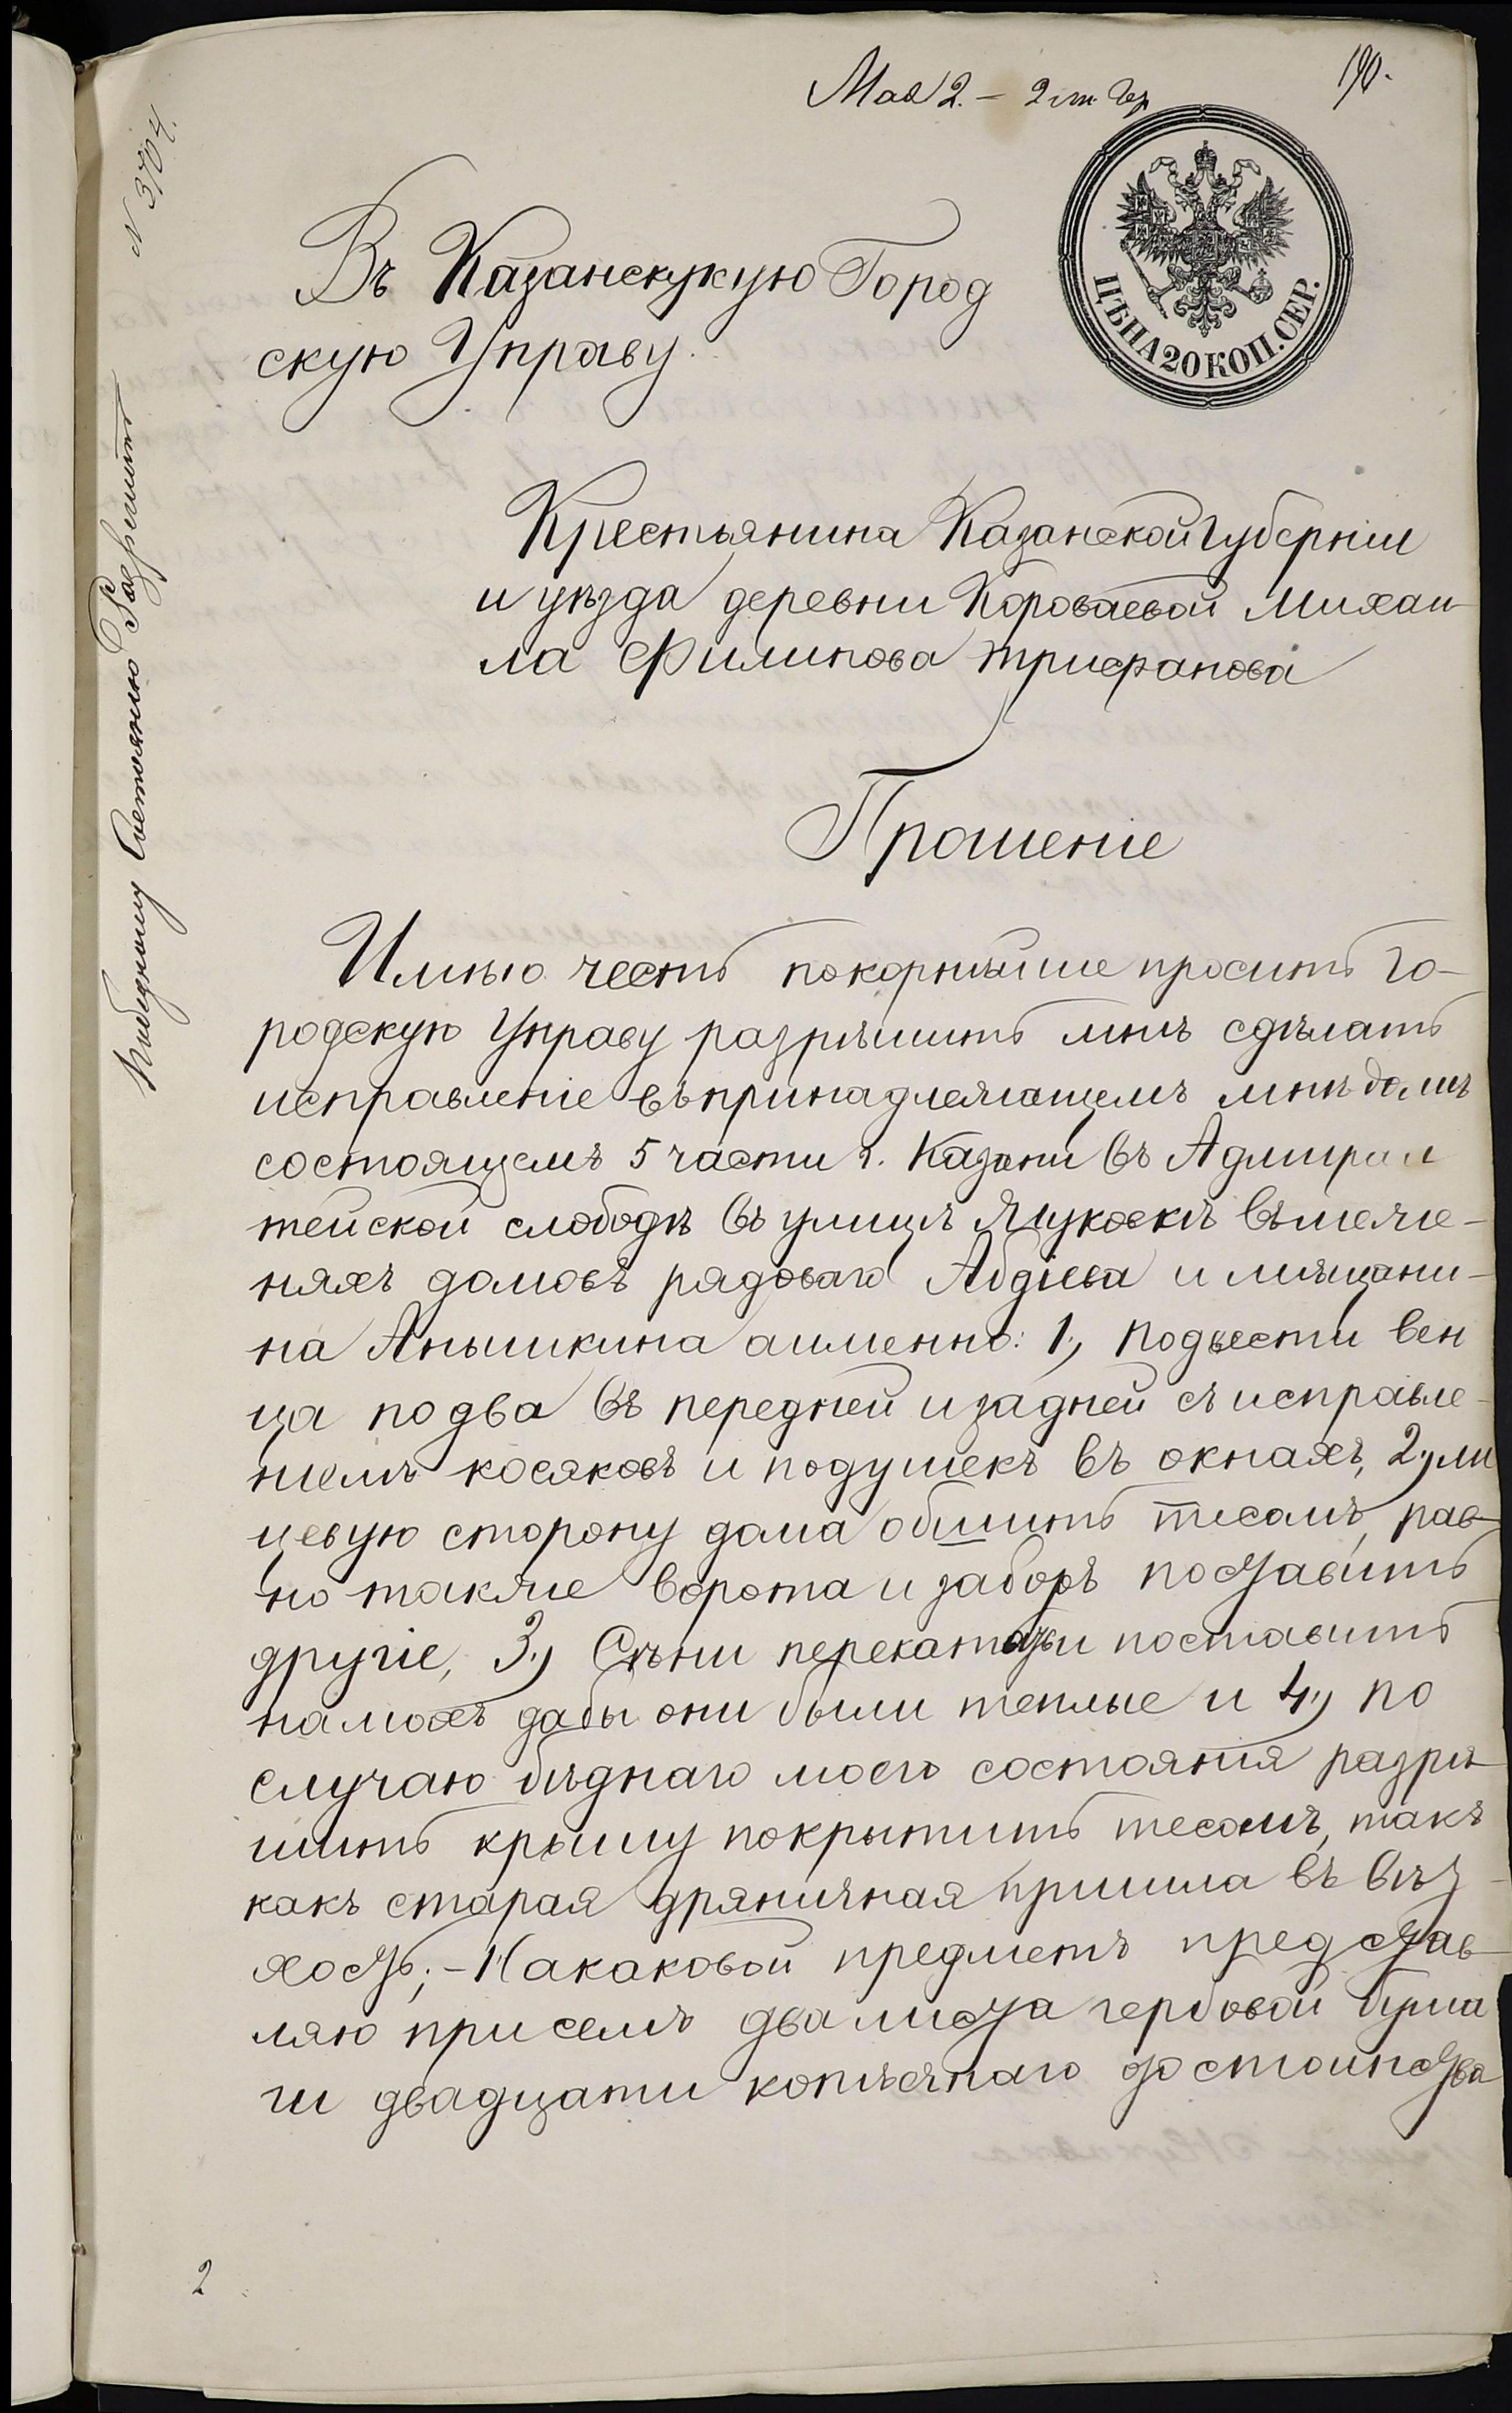 Мая 2. – 2 лт. Гер
190.
N 3704.
Въ Казанскукую Город
скую Управу.
ЦѢНА 20 КОП. СЕР.
Крестьянина Казанской Губерніи
и уѣзда деревни Короваевой Михаи-
ла Филипова Трифанова
Прошеніе
Имѣю честь покорнѣйше просить Го-
родскую Управу разрѣшить мнѣ сдѣлать
исправленіе въ принадлежащемъ мнѣ домѣ
состоящемъ 5 части г. Казани въ Адмирал
тейской слободѣ въ улицѣ въ меже-
няхъ домовъ рядоваго Абдіева и мѣщани-
на Анышкина аименно: 1., Подвести вен
ца по два въ передней и задней съ исправле-
ніемъ косяковъ и подушекъ въ окнахъ, 2., ли
цевую сторону дома обшить тесомъ, рав-
но также ворота и заборъ поставить
другіе, 3., Сѣни перекатать и поставить
на мохъ дабы они были теплые и 4., по
случаю бѣднаго моего состоянія разрѣ-
шить крышу покрытить тесомъ, такъ
какъ старая дряничная пришла въ вѣт-
хость; – На каковой предметъ представ-
ляю при семъ два листа гербовой бума
ги двадцати копѣечнаго достоинства
Разрешить
2